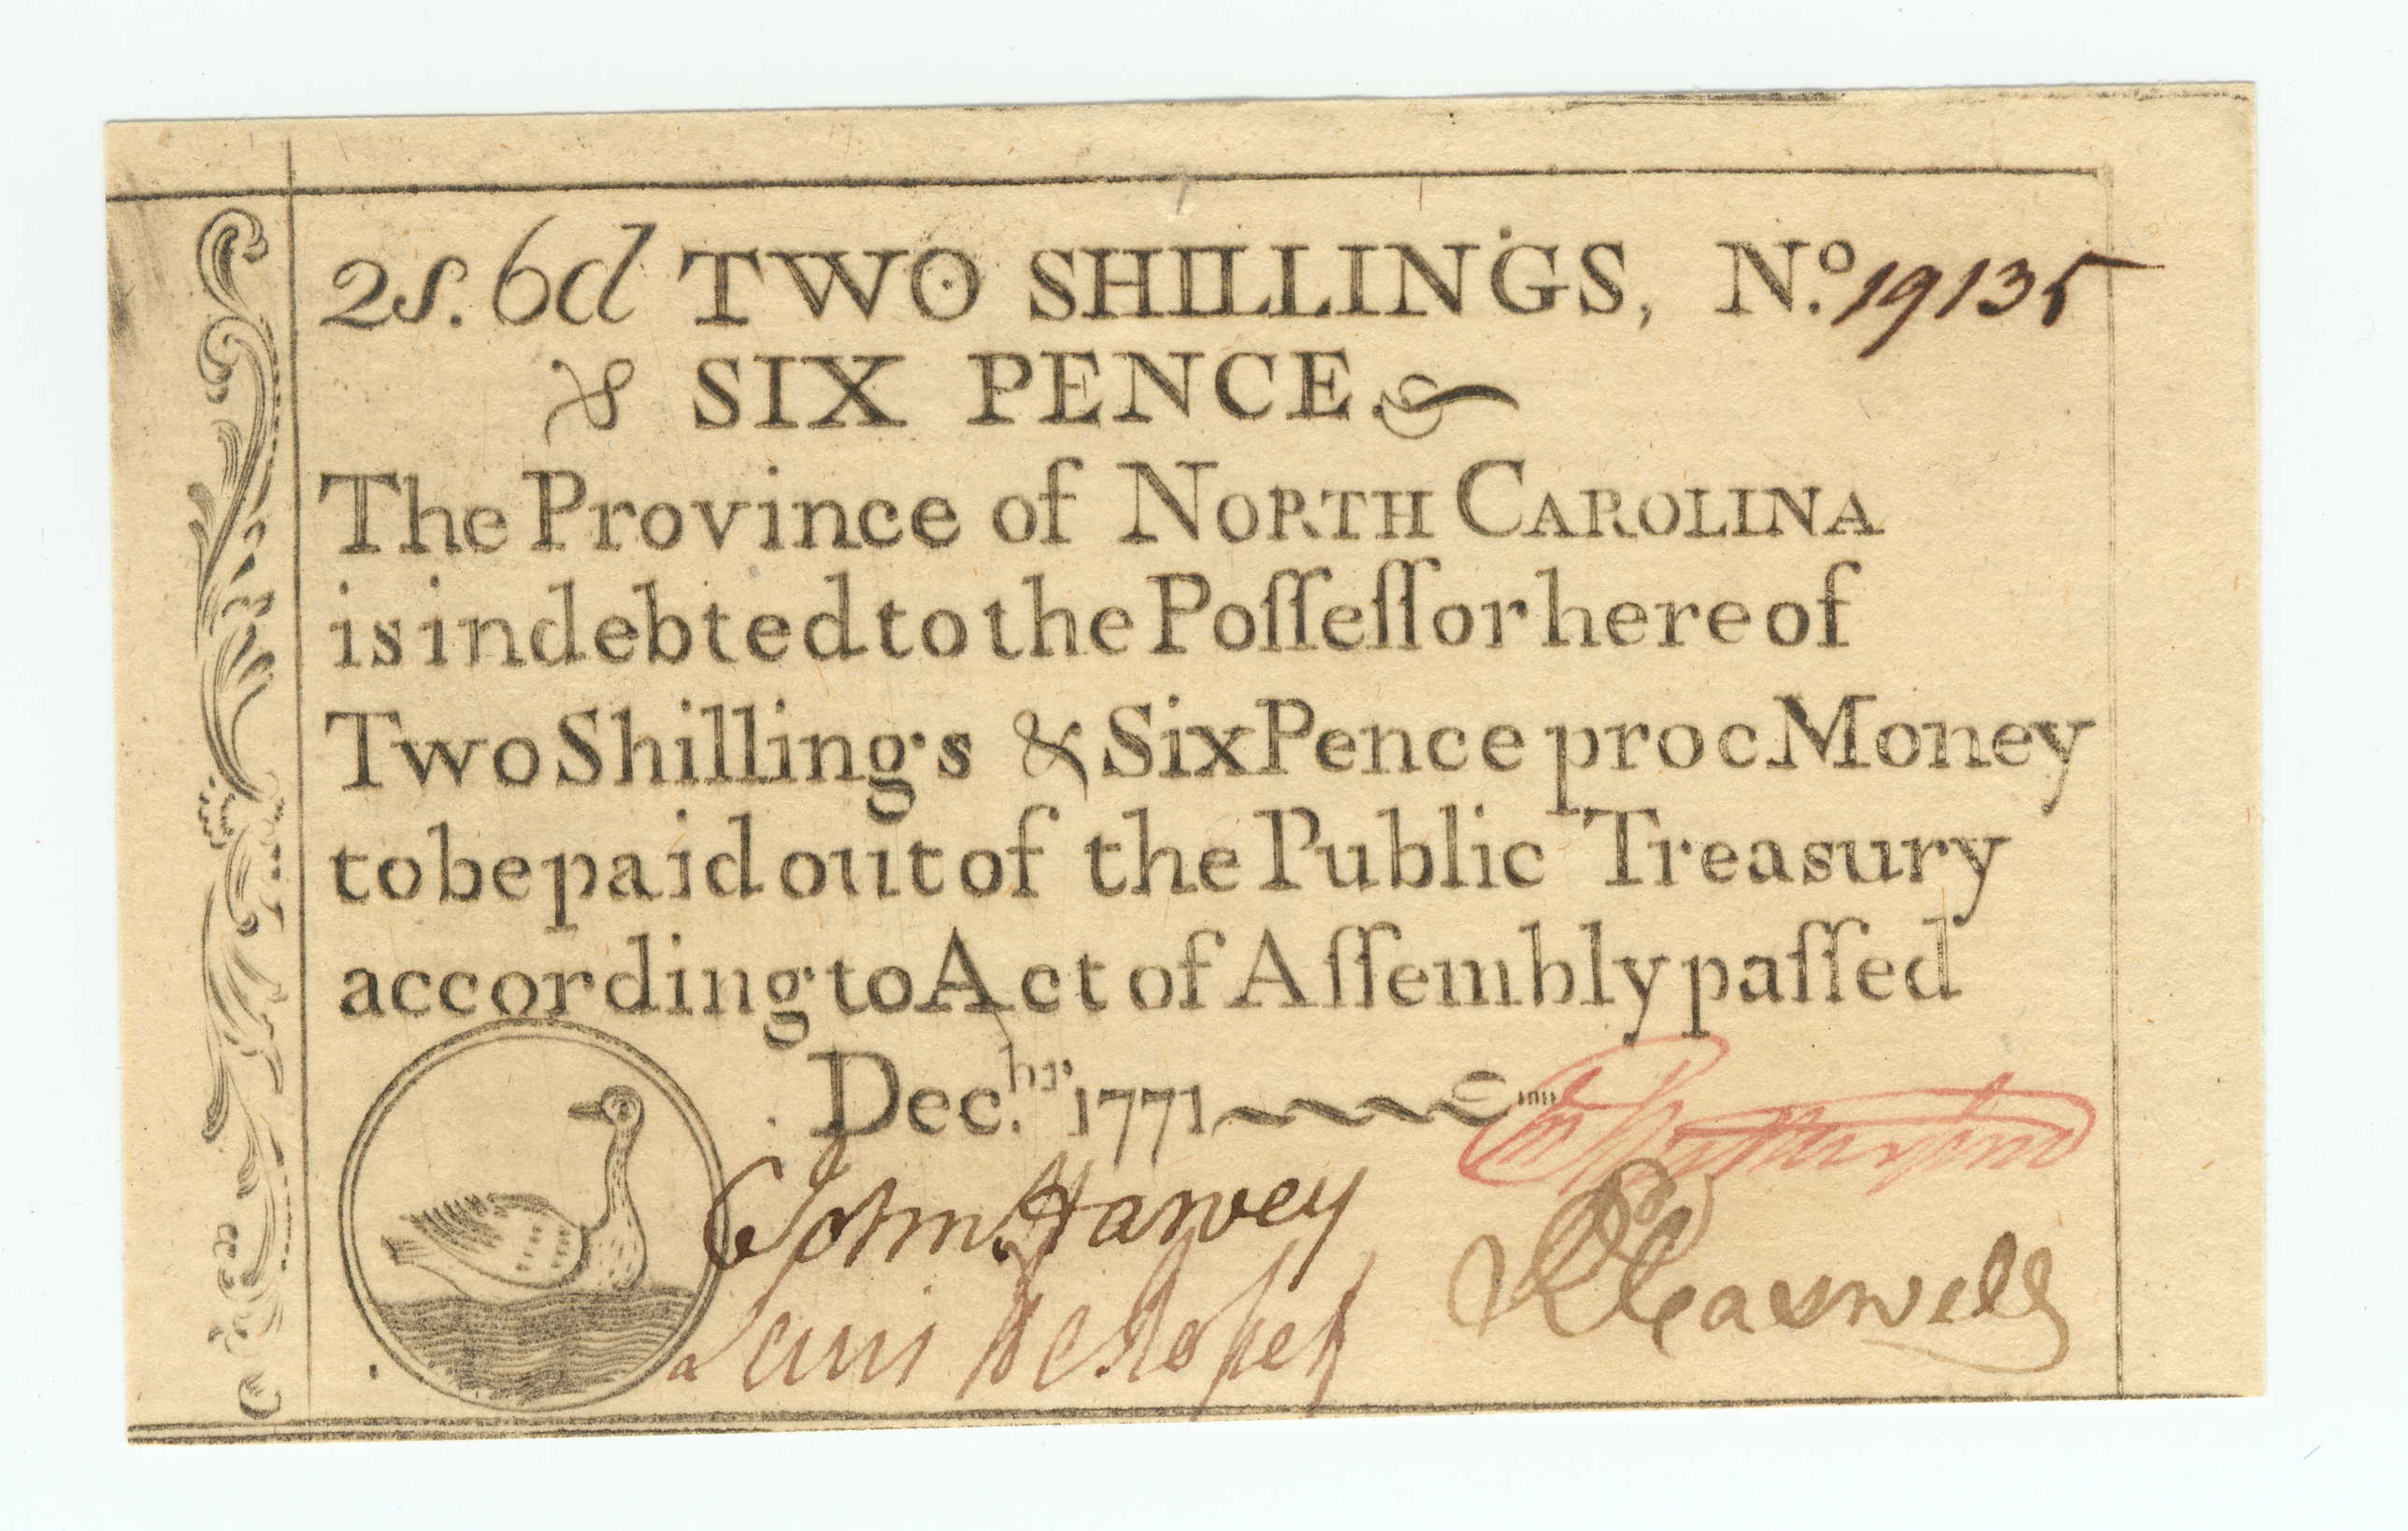 2s. 6d TWO SHILLINGS, No. 19135
& SIX PENCE.
The Province of NORTH CAROLINA
is indebted to the Poſſeſſor hereof
Two Shillings & Six Pence proc Money
to be paid out of the Public Treasury
according to Act of Aſſembly paſſed
Dec.br 1771
John Harvey
Lewis De Rosset
Rd Caswell